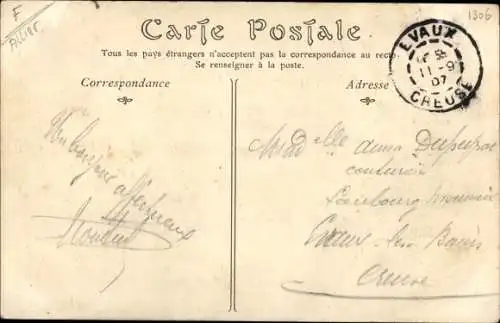 F
Allier
1306
Carte Postale
Tous les pays étrangers n'acceptent pas la correspondance au recto
Se renseigner à la poste.
Correspondance
Adresse
EVAUX
11-9
07
CREUSE
Un baiser affectueux
Madelle Anna
couturière
Faubourg
Evaux-les-Bains
Creuse